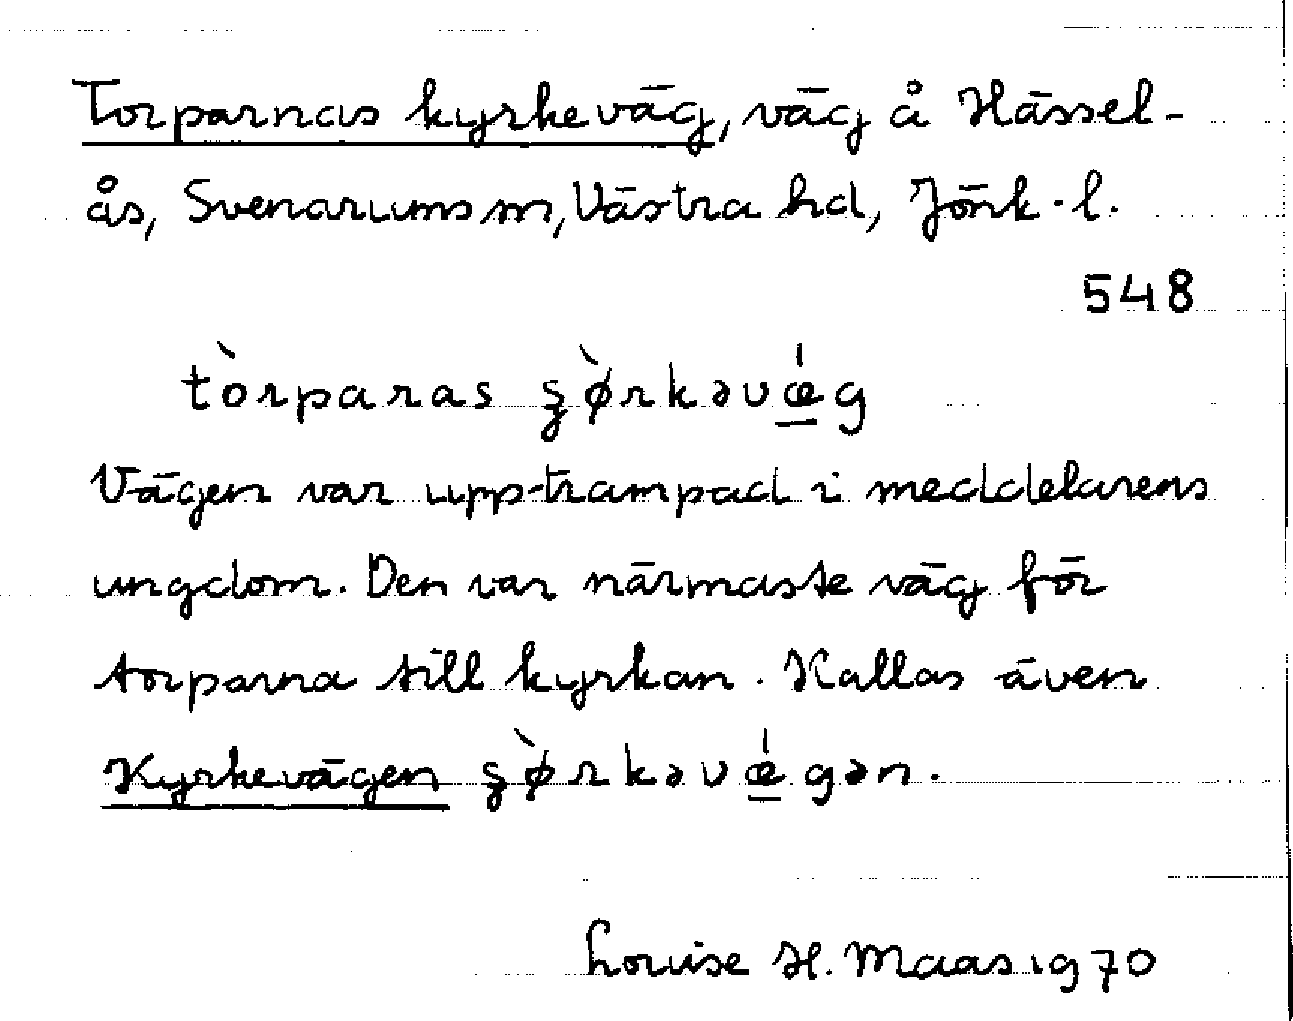 Torparnas kyrkeväg, väg å Hässel-
ås, Svenarums sn, Västra hd, Jönk. l.
548
tòrparas ʂø̀rkəvǽg
Vägen var upptrampad i meddelarens
ungdom. Den var närmaste väg för
torparna till kyrkan. Kallas även
Kyrkevägen ʂø̀rkəvǽgən.
Louise H. Maas 1970